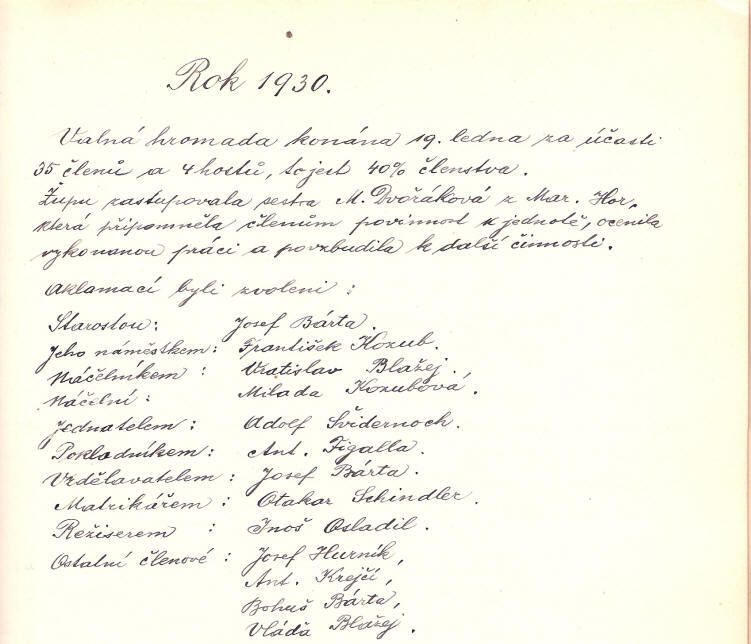 Rok 1930.
Valná hromada konána 19. ledna za účasti
35 členů a 4 hostů, to jest 40% členstva.
Župu zastupovala sestra M. Dvořáková z Mar. Hor,
která připomněla členům povinnost k jednotě, ocenila
vykonanou práci a povzbudila k další činnosti.
Aklamací byli zvoleni :
Starostou: Josef Bárta.
Jeho náměstkem: František Kozub.
Náčelníkem : Vratislav Blažej.
Náčelní : Milada Kozubová.
Jednatelem : Adolf Švidernoch.
Pokladníkem: Ant. Figalla.
Vzdělavatelem : Josef Bárta.
Matrikářem : Otakar Schindler.
Režiserem : Inoš Osladil.
Ostatní členové : Josef Hurník,
Ant. Krejčí,
Bohuš Bárta,
Vláďa Blažej.